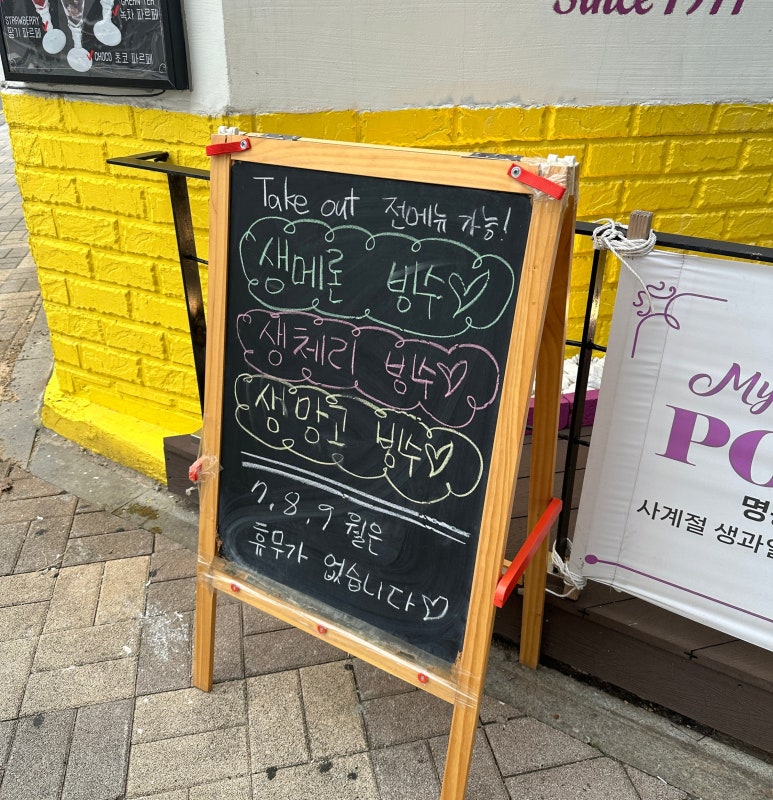 Since 1971
GREEN TEA
녹차 파르페
STRAWBERRY
딸기 파르페
CHOCO 초코 파르페
Take out 전메뉴 가능!
생메론 빙수
생체리 빙수
생망고 빙수
7, 8, 9 월은
휴무가 없습니다
My
사계절 생과일